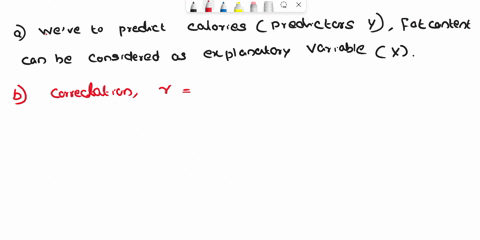 a) we've to predict calories (predictors y), Fat content
can be considered as explanatory variable (x).
b) Correclation, r =